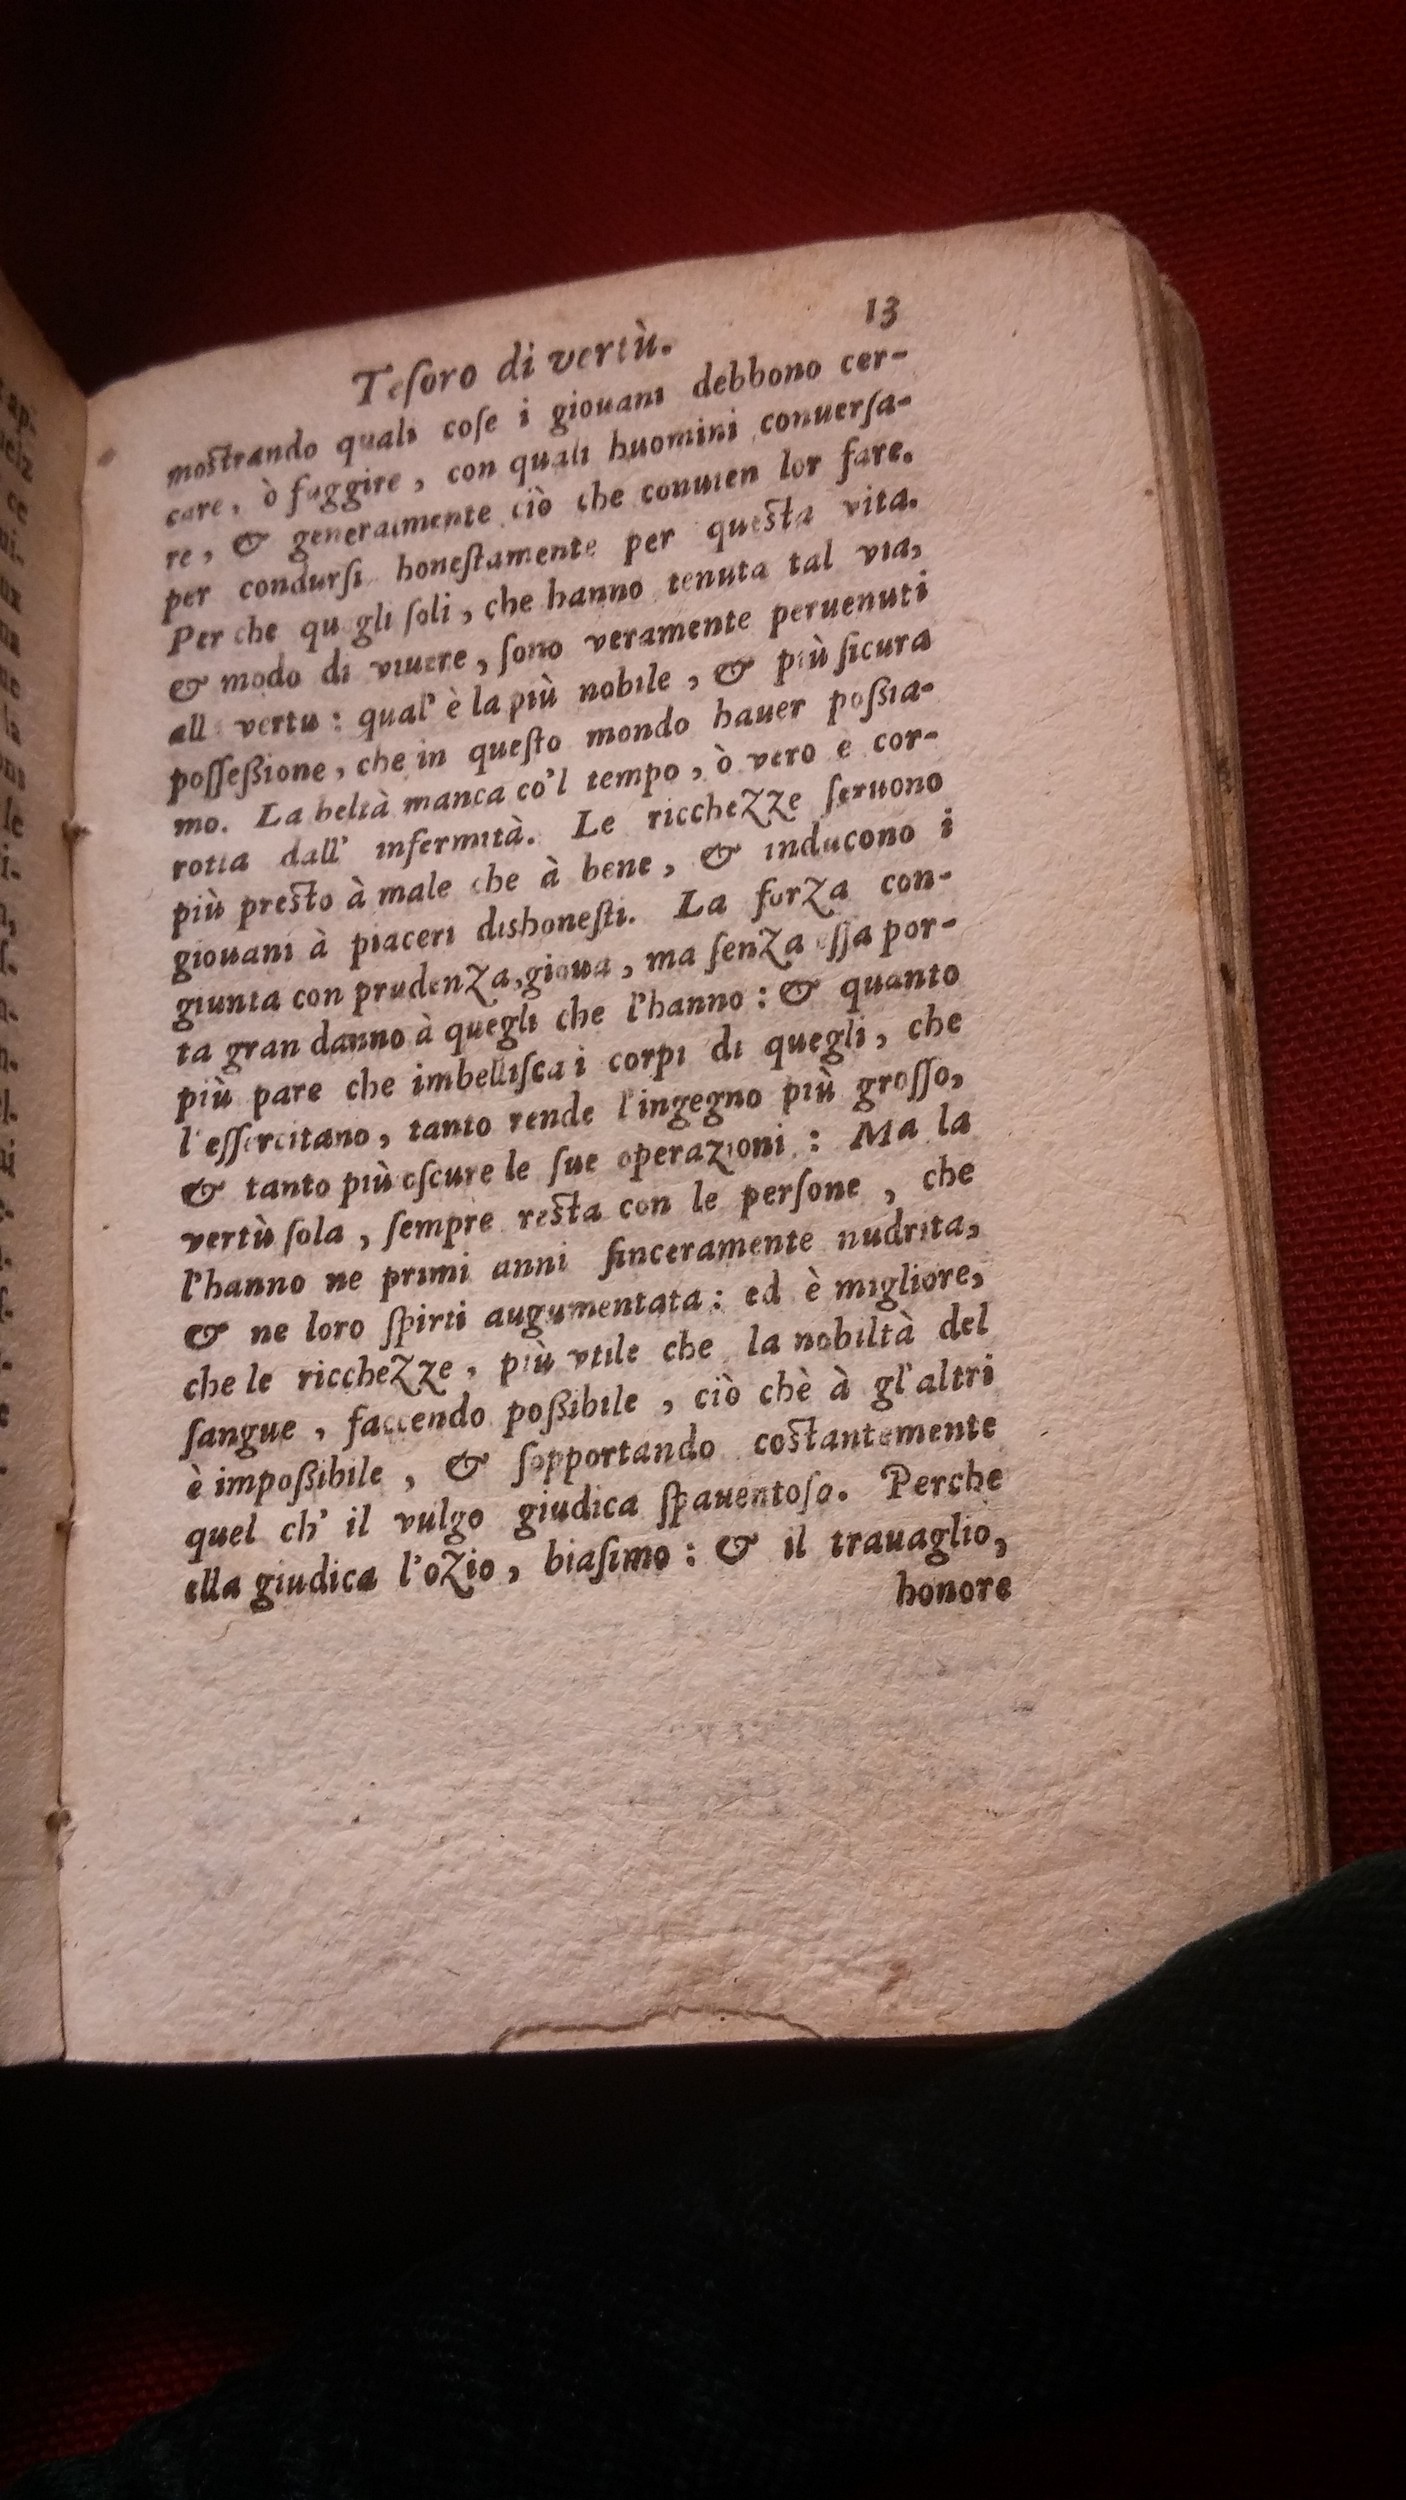 13
Teſoro di vertù.
moſtrando quali coſe i giouani debbono cer-
care, ò fuggire, con quali huomini conuerſa-
re, & generalmente ciò che conuien lor fare.
per condurſi honeſtamente per queſta vita.
Per che gli ſoli, che hanno tenuta tal via,
& modo di viuere, ſono veramente peruenuti
all vertu: qual' è la più nobile, & più ſicura
poſſeßione, che in queſto mondo hauer poßia-
mo. La beltà manca co'l tempo, ò vero è cor-
rotta dall' infermità. Le ricchezze ſeruono
più preſto à male che à bene, & inducono i
giouani à piaceri dishoneſti. La forza con-
giunta con prudenza, gioua, ma ſenza eſſa por-
ta gran danno à quegli che l'hanno: & quanto
più pare che imbelliſca i corpi di quegli, che
l'eſſercitano, tanto rende l'ingegno più groſſo,
& tanto più oſcure le ſue operazioni: Ma la
vertù ſola, ſempre reſta con le perſone, che
l'hanno ne primi anni ſinceramente nudrita,
& ne loro ſpirti augumentata: ed è migliore,
che le ricchezze, più vtile che la nobiltà del
ſangue, faccendo poßibile, ciò chè à gl'altri
è impoßibile, & ſopportando coſtantemente
quel ch' il vulgo giudica ſpauentoſo. Perche
ella giudica l'ozio, biaſimo: & il trauaglio,
honore